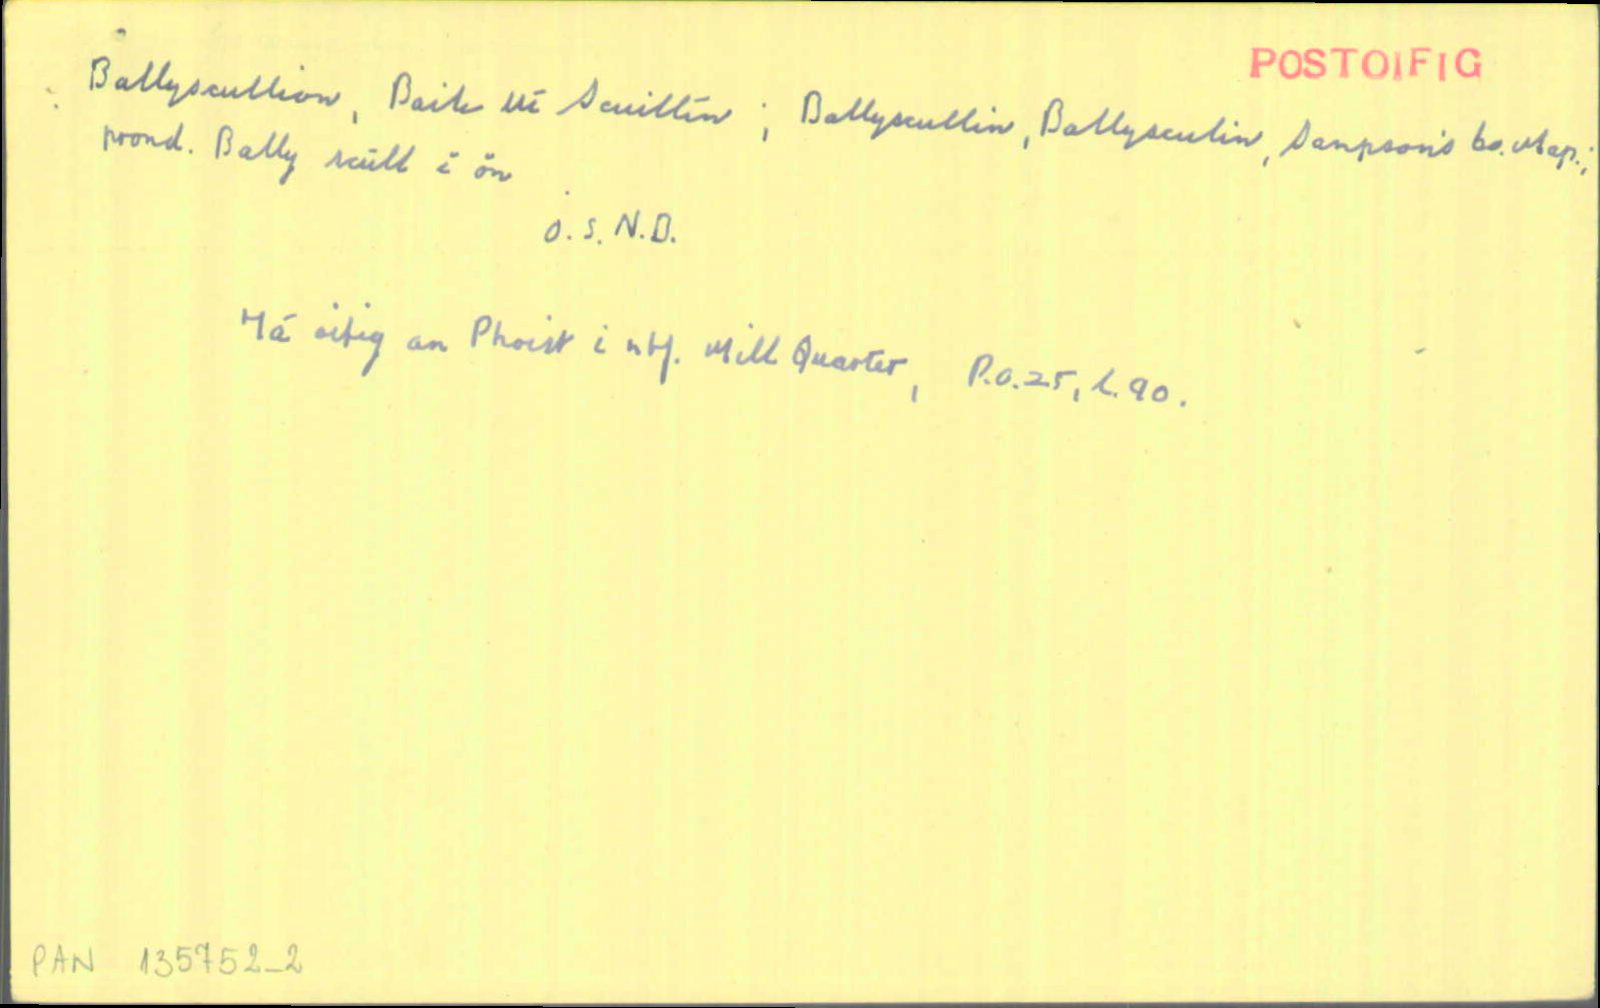 POSTOIFIG
Ballyscullion, Baile Uí Scuillín; Ballyscullin, Ballysculin, Sampson's Co. Map.;
prond. Bally scúll ĭ ŏn
O.S.N.B.
Tá oifig an Phoist i mbf. Mill Quarter, P.O.25, l.90.
PAN 135752_2